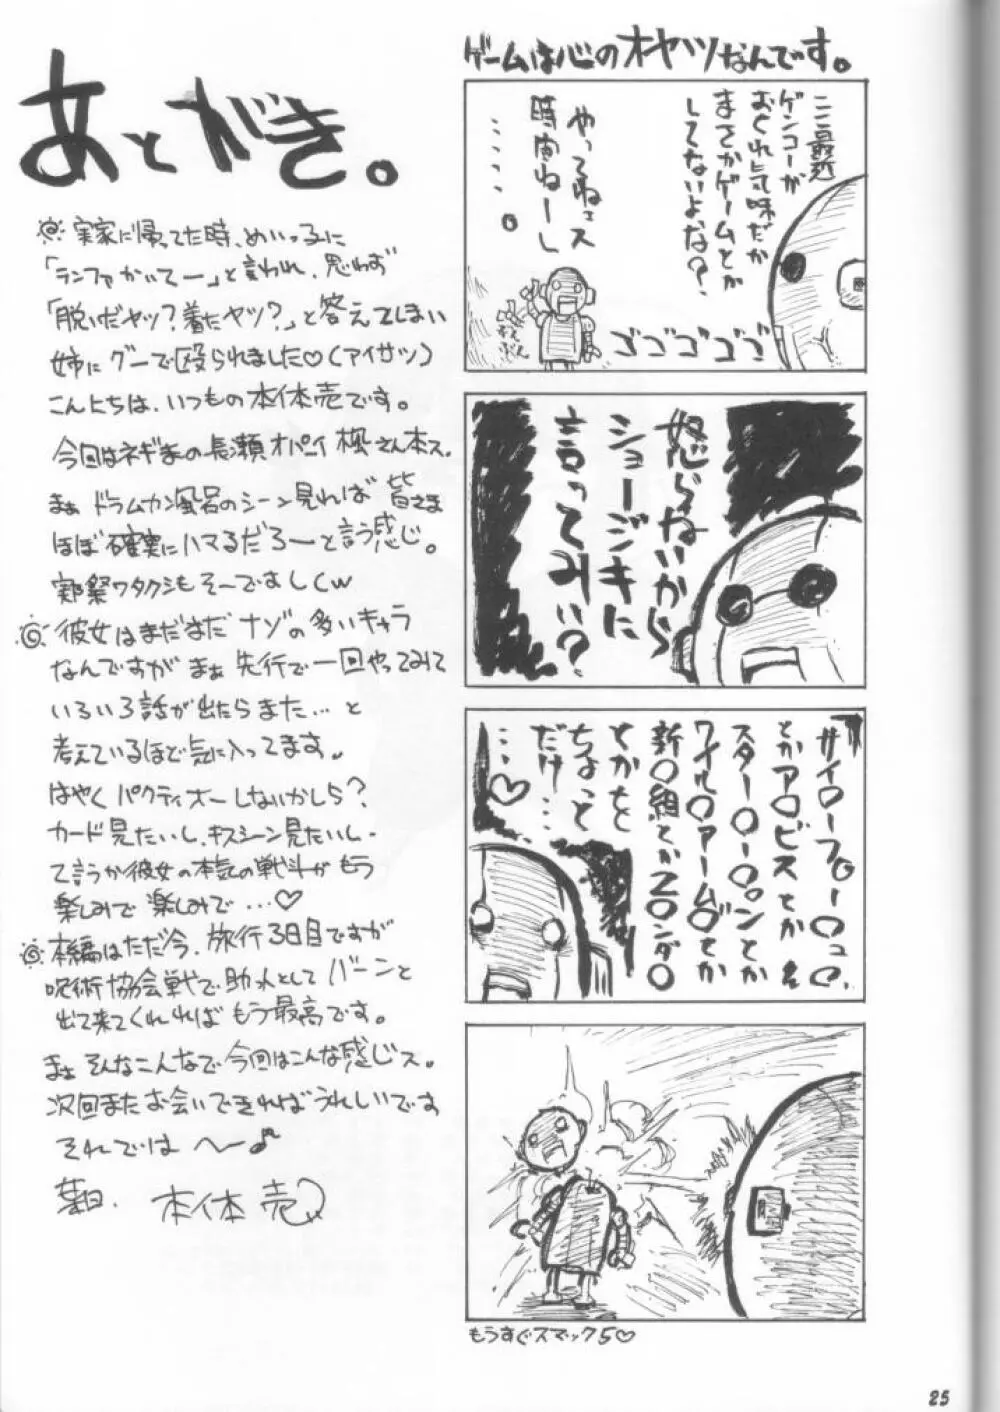 あとがき。
実家に帰ってた時、めいっ子に
「ランファかいてー」と言われ、思わず
「脱いだヤツ?着たヤツ?」と答えてしまい
姉にグーで殴られました♡(アイサツ)
こんにちは、いつもの本体売です。
今回はネギまの長瀬オパーイ楓さん本ス。
まぁドラムカン風呂のシーン見れば皆さま
ほぼ確実にハマるだろーと言う感じ。
実際ワタクシもそーでましくw
彼女はまだまだナゾの多いキャラ
なんですがまぁ先行で一回やってみて
いろいろ話が出たらまた…と
考えているほど気に入ってます。
はやくパクティオーしないかしら?
カード見たいし、キスシーン見たいし。
て言うか彼女の本気の戦斗がもう
楽しみで楽しみで…♡
本編はただ今、旅行3日目ですが
呪術協会戦で助火としてバーンと
出て来てくれればもう最高です。
まぁそんなこんなで今回はこんな感じス。
次回またお会いできればうれしいです
それでは〜♪
草日.本体売
ゲームは心のオヤツなんです。
ここ最近
ゲンコーが
おくれ気味だが
まさかゲームとか
してないよな?
やってねェス
時間ねーし
・・・・・。
ゴゴゴゴゴ
怒らねいから
ショージキに
言ってみい?
サイ○ーフ○ー○ュ○、
とかア○ビスとか
スター○ー○○ンとか
ワイル○アーム○とか
新○組とかZ○ンダ○
とかを
ちょっと
だけ…
…♡
脳
もうすぐスマック5♡
25